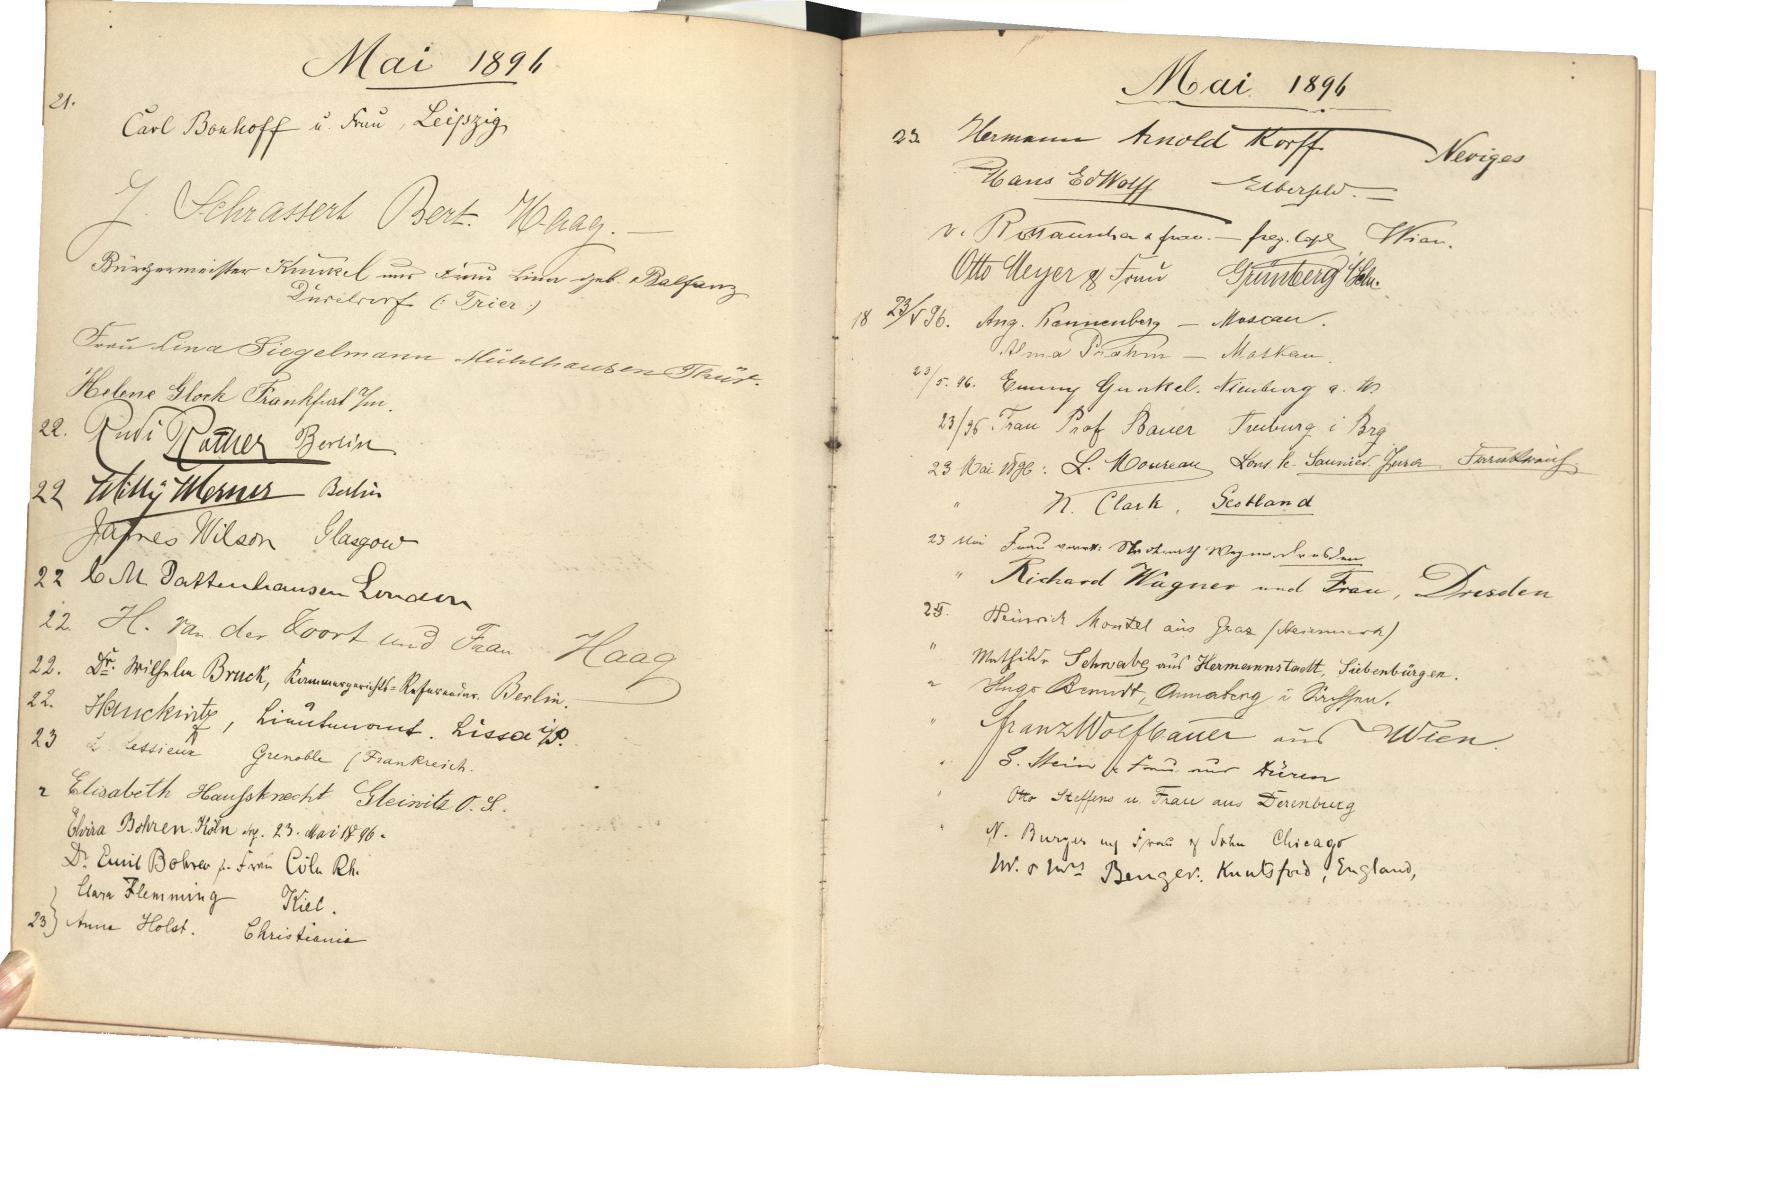 Mai 1896
21.
Carl Bonhoff u. Frau, Leipzig
J. Schrassert Bert. Haag. —
Bürgermeister Kunkel und Frau Lina geb. Balfanz
Düsseldorf (: Trier :)
Frau Lina Siegelmann Mühlhausen Thür.
Helene Gloch Frankfurt a/m.
22. Rudi Rother Berlin
22 Willy Werner Berlin
James Wilson Glasgow
22 C M Dattenhausen London
22 H. van der Voort und Frau Haag
22. Dr. Wilhelm Bruck, Kammergerichts-Referendar. Berlin.
22. Lieutenant. Lissa i/P.
23 L. Lessieux Grenoble (Frankreich.
" Elisabeth Haussknecht Gleiwitz O. S.
Elvira Bohren Köln 23. Mai 1896.
Dr. Emil Bohren u. Frau Cöln Rh.
Clara Flemming Kiel.
23 } Anna Holst. Christiania
Mai 1896
23. Hermann Arnold Korff Neviges
Hans Ed Wolff Elberfeld.
v. & Frau. — Wien.
Otto Meyer & Frau Grünberg Schl.
18 23/V 96. Aug. Kannenberg — Moscau.
Alma Prahm — Moskau.
23/5. 96. Emmy Gunkel. Nienburg a. W
23/96 Frau Prof Bauer Freiburg i Brg
23 Mai 1896: L. Moureau Lons le Saunier Jura Frankreich
" N. Clark, Scotland
23 Mai Frau Wagner Dresden
" Richard Wagner und Frau, Dresden
23. Heinrich Montel aus Graz (Steiermark)
" Mathilde Schwabe aus Hermannstadt, Siebenbürgen.
" Hugo Berndt, Annaberg i Sachsen.
" Franz Wolfbauer aus Wien.
" G. Stein & Frau aus Düren
" Otto Steffens u. Frau aus Derenburg
" N. Burger Frau & Sohn Chicago
Mr. & Mrs Benger. Knutsford, England,